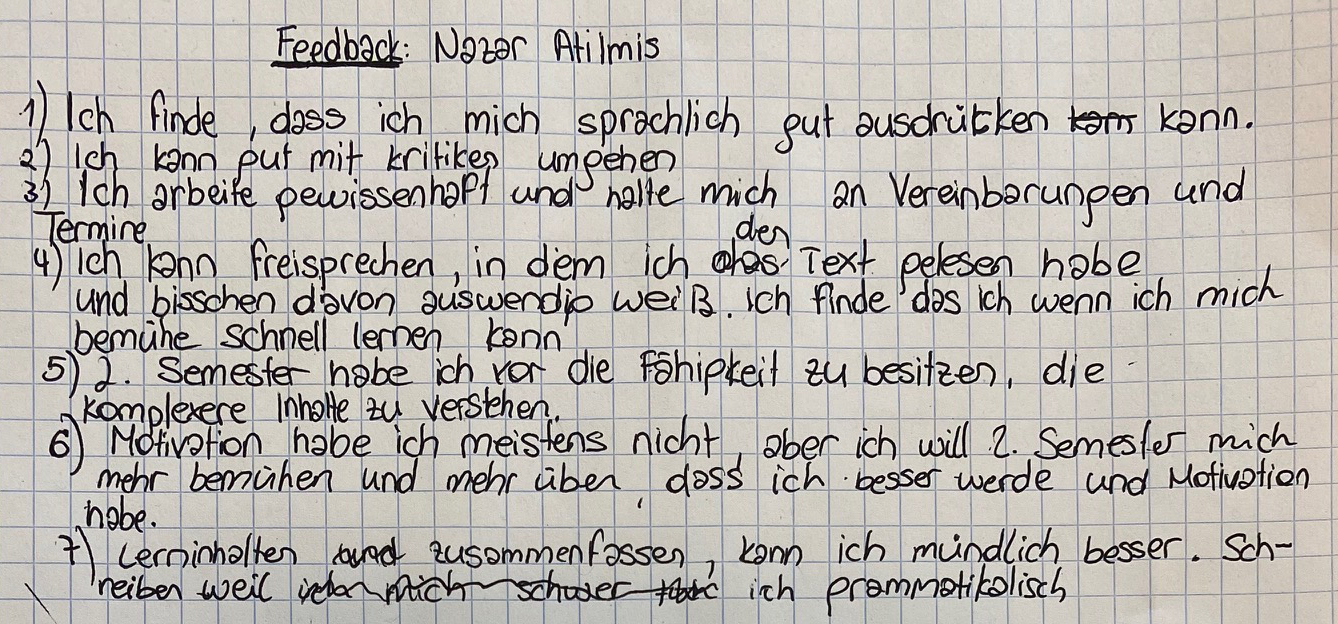 Feedback: Nazar Atilmis
1) Ich finde, dass ich mich sprachlich gut ausdrücken kann.
2) Ich kann gut mit kritiken umgehen
3) Ich arbeite gewissenhaft und halte mich an Vereinbarungen und
Termine
4) Ich kann freisprechen, in dem ich den Text gelesen habe
und bisschen davon auswendig weiß. ich finde das ich wenn ich mich
bemühe schnell lernen kann
5) 2. Semester habe ich vor die Fähigkeit zu besitzen, die
komplexere Inhalte zu verstehen.
6) Motivation habe ich meistens nicht, aber ich will 2. Semester mich
mehr bemühen und mehr üben, dass ich besser werde und Motivation
habe.
7) Lerninhalten zusammenfassen, kann ich mündlich besser. Sch-
reiben weil ich grammatikalisch